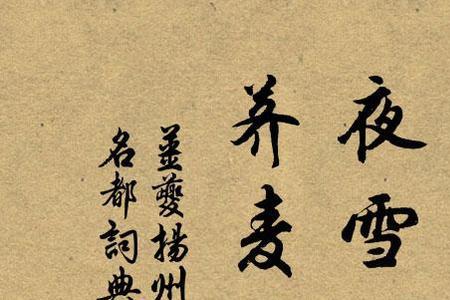 夜雪
荠麦
薑夔揚州
名都詞典